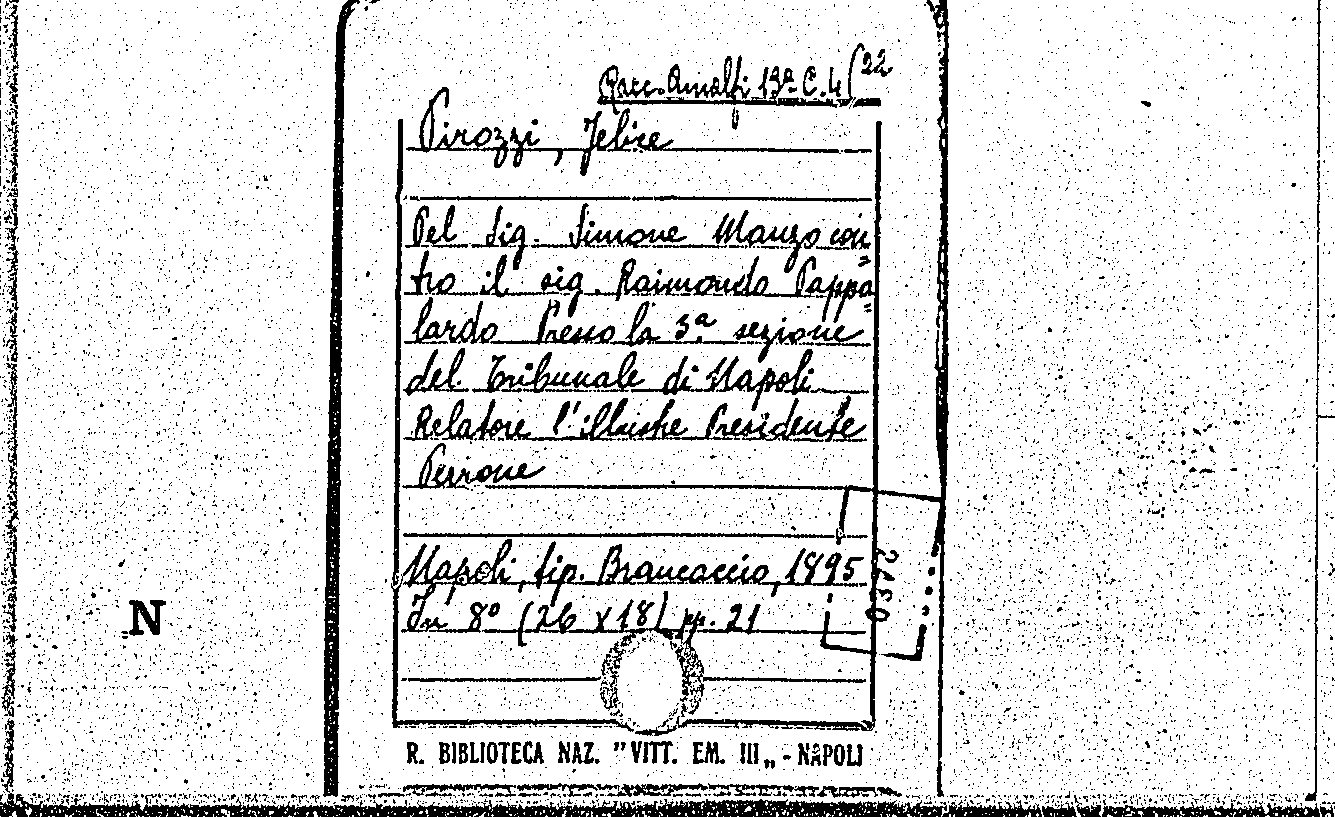 Racc. Amalfi 13ª C.4/22
Pirozzi, Felice
Pel Sig. Simone Manzo con=
tro il sig. Raimondo Pappa=
lardo Presso la 3ª sezione
del Tribunale di Napoli
Relatore l'illustre Presidente
Perrone
Napoli, tip. Brancaccio, 1895
In 8º (26 x 18) pp. 21
N
R. BIBLIOTECA NAZ. "VITT. EM. III„ - NAPOLI